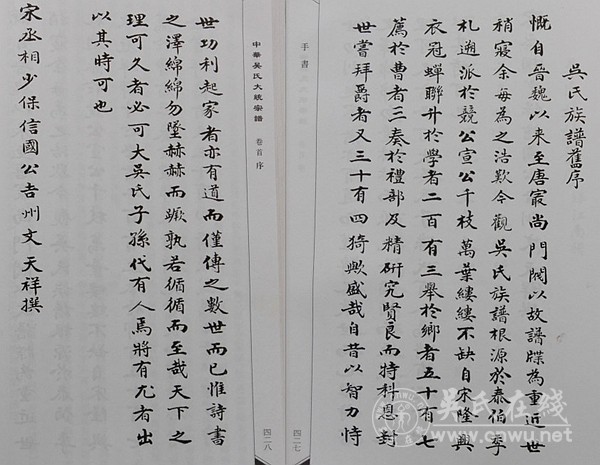 吳氏族譜舊序
慨自晉魏以来至唐㝡尚門閥以故譜牒為重近世
稍寝余毎為之浩歎今觀吳氏族譜根源於泰伯季
札遡派於競公宣公千枝萬葉縷縷不缺自宋隆興
衣冠蟬聯升於學者二百有三舉於鄉者五十有七
薦於曹者二奏於禮部及精研究賢良而特科恩封
世嘗拜爵者又三十有四猗歟盛哉自昔以智力恃
手書
四二七
中華吳氏大統宗譜
卷首 序
四二八
世功利起家者亦有道而僅傳之數世而已惟詩書
之澤綿綿勿墜赫赫而蹶孰若循循而至哉天下之
理可久者必可大吳氏子孫代有人焉將有尤者出
以其時可也
宋丞相少保信國公吉州文天祥撰
吳氏在线
www.cnwu.net